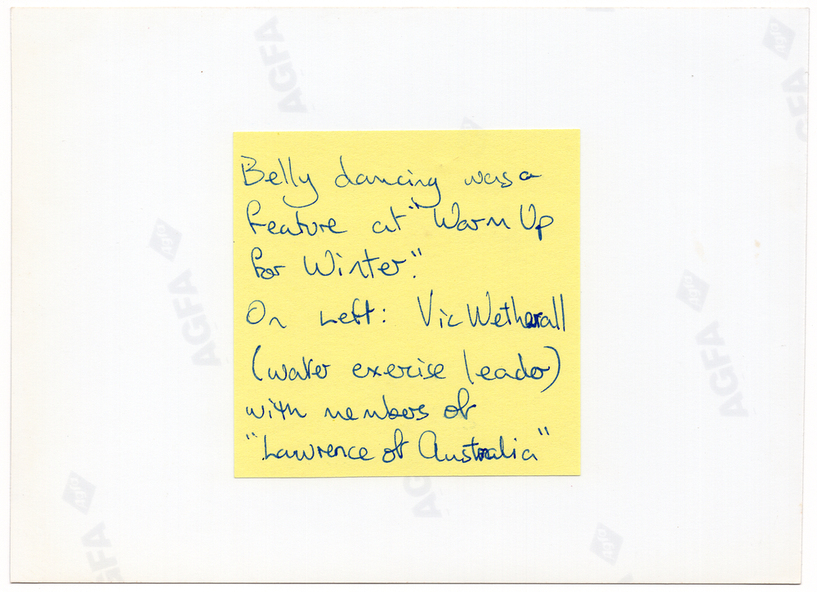 Belly dancing was a
feature at "Warm Up
for Winter."
On Left: Vic Wetherall
(water exercise leader)
with members of
"Lawrence of Australia"
AGFA
AGFA
AGFA
AGFA
AGFA
AGFA
AG